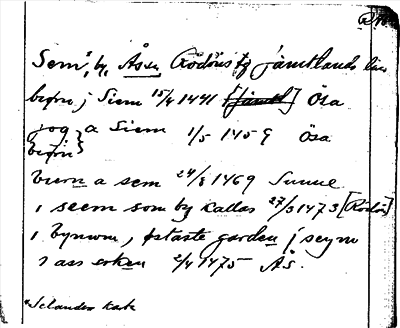 Sem, by, Åsen, Rödöns tg Jämtlands län
biørn j Siem 15/4 1441 [jämtl] Ösa
jog } a Siem 1/5 1459 Ösa
biørn }
biern a sem 24/8 1469 Sunne
i seem som by kallas 27/3 1473 [Rödön]
i bynwm, østaste garden j seym
i ass soken 2/4 1475 Ås.
Selander kak